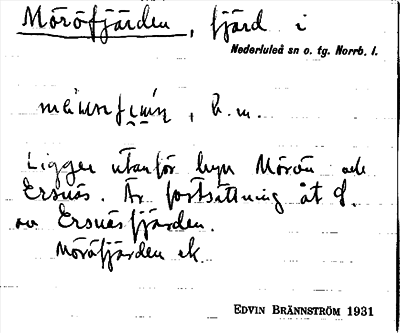 Möröfjärden, fjärd i
Nederluleå sn o. tg. Norrb. l.
b. m.
Ligger utanför byn Mörön och
Ersnäs. Är fortsättning åt
av Ersnäsfjärden.
Möröfjärden ek.
EDVIN BRÄNNSTRÖM 1931